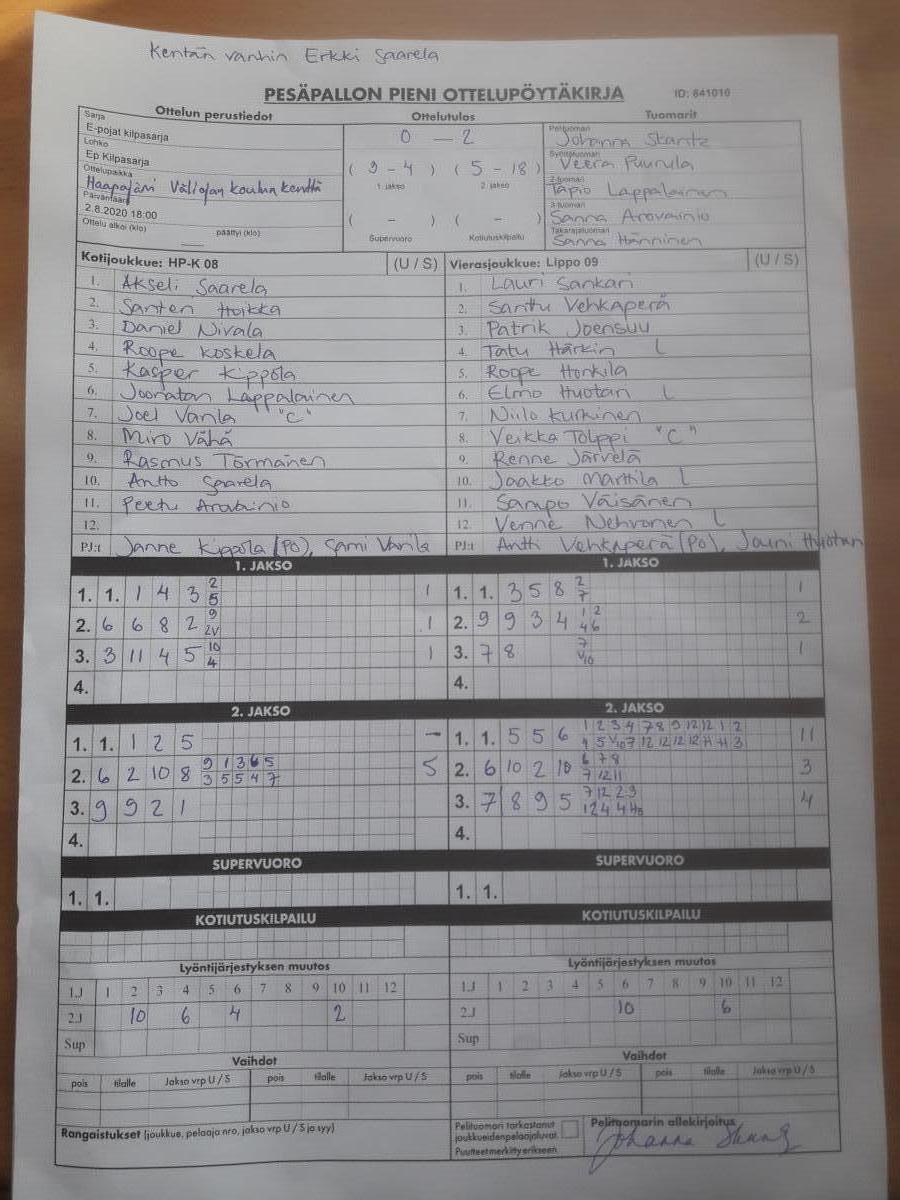 Kentän vanhin Erkki Saarela
PESÄPALLON PIENI OTTELUPÖYTÄKIRJA ID: 841010
Ottelun perustiedot
Sarja
E-pojat kilpasarja
Lohko
Ep Kilpasarja
Ottelupaikka
Haapajärvi Väliojan koulun kenttä
Päivämäärä
2.8.2020 18:00
Ottelu alkoi (klo) päättyi (klo)
Ottelutulos
0 - 2
( 3 - 4 ) ( 5 - 18 )
1. jakso 2. jakso
( - ) ( - )
Supervuoro Kotiutuskilpailu
Tuomarit
Pelituomari
Johanna Skantz
Syöttötuomari
Veera Puurula
2-tuomari
Tapio Lappalainen
3-tuomari
Sanna Arovainio
Takarajatuomari
Sanna Hänninen
Kotijoukkue: HP-K 08 (U / S)
1. Akseli Saarela
2. Santeri Hoikka
3. Daniel Nivala
4. Roope Koskela
5. Kasper Kippola
6. Joonatan Lappalainen
7. Joel Vanla "C"
8. Miro Vähä
9. Rasmus Törmänen
10. Antto Saarela
11. Peetu Arovainio
12.
PJ:t Janne Kippola (PO), Sami Vanla
Vierasjoukkue: Lippo 09 (U / S)
1. Lauri Sankari
2. Santtu Vehkaperä
3. Patrik Joensuu
4. Tatu Härkin L
5. Roope Honkila
6. Elmo Huotari L
7. Niilo Kurkinen
8. Veikka Tolppi "C"
9. Renne Järvelä
10. Jaakko Marttila L
11. Sampo Väisänen
12. Venne Nehvonen L
PJ:t Antti Vehkaperä (PO), Jouni Huotari
1. JAKSO
1. 1. 1 4 3 2 1
5
2. 6 6 8 2 9 1
2V
3. 3 11 4 5 10 1
4
4.
1. JAKSO
1. 1. 3 5 8 2 1
7
2. 9 9 3 4 1 2 2
4 6
3. 7 8 7 1
V10
4.
2. JAKSO
1. 1. 1 2 5 -
2. 6 2 10 8 9 1 3 6 5 5
3 5 5 4 7
3. 9 9 2 1
4.
2. JAKSO
1. 1. 5 5 6 1 2 3 4 7 8 9 12 12 1 2 11
4 5 V10 7 12 12 12 12 H H 3
2. 6 10 2 10 6 7 8 3
7 12 11
3. 7 8 9 5 7 12 2 3 4
12 4 4
4.
SUPERVUORO
1. 1.
SUPERVUORO
1. 1.
KOTIUTUSKILPAILU
KOTIUTUSKILPAILU
Lyöntijärjestyksen muutos
1.J 1 2 3 4 5 6 7 8 9 10 11 12
2.J 10 6 4 2
Sup
Lyöntijärjestyksen muutos
1.J 1 2 3 4 5 6 7 8 9 10 11 12
2.J 10 6
Sup
Vaihdot
pois tilalle Jakso vrp U / S pois tilalle Jakso vrp U / S
Vaihdot
pois tilalle Jakso vrp U / S pois tilalle Jakso vrp U / S
Rangaistukset (joukkue, pelaaja nro, jakso vrp U / S ja syy)
Pelituomari tarkastanut
joukkueiden pelaajaluvat.
Puutteet merkitty erikseen
Pelituomarin allekirjoitus
Johanna Skantz